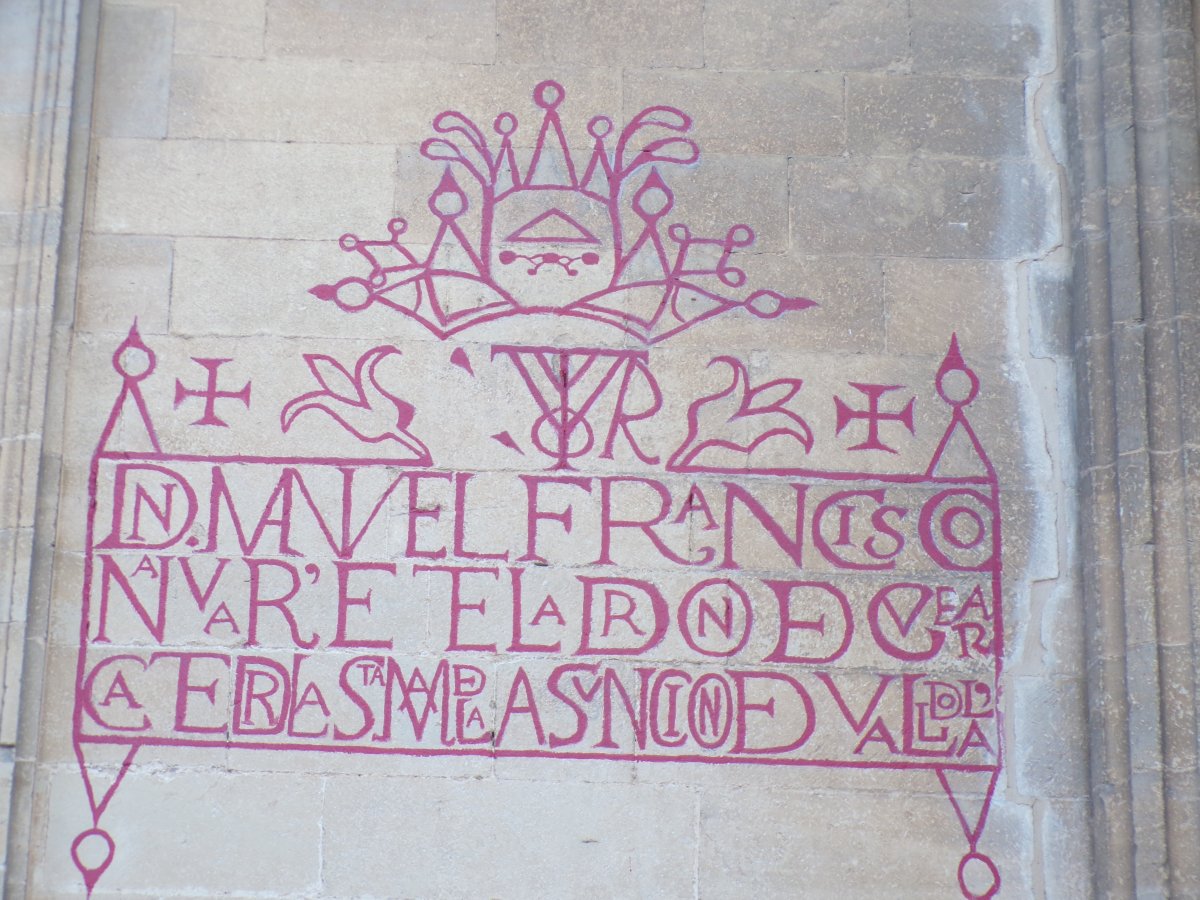 VITOR
DN. MANVEL FRANCISCO
NAVAR'ETE LADRON DE GVEAR
CATEDRAL STA MA DE LA ASVNCION DE VALLDOL'A